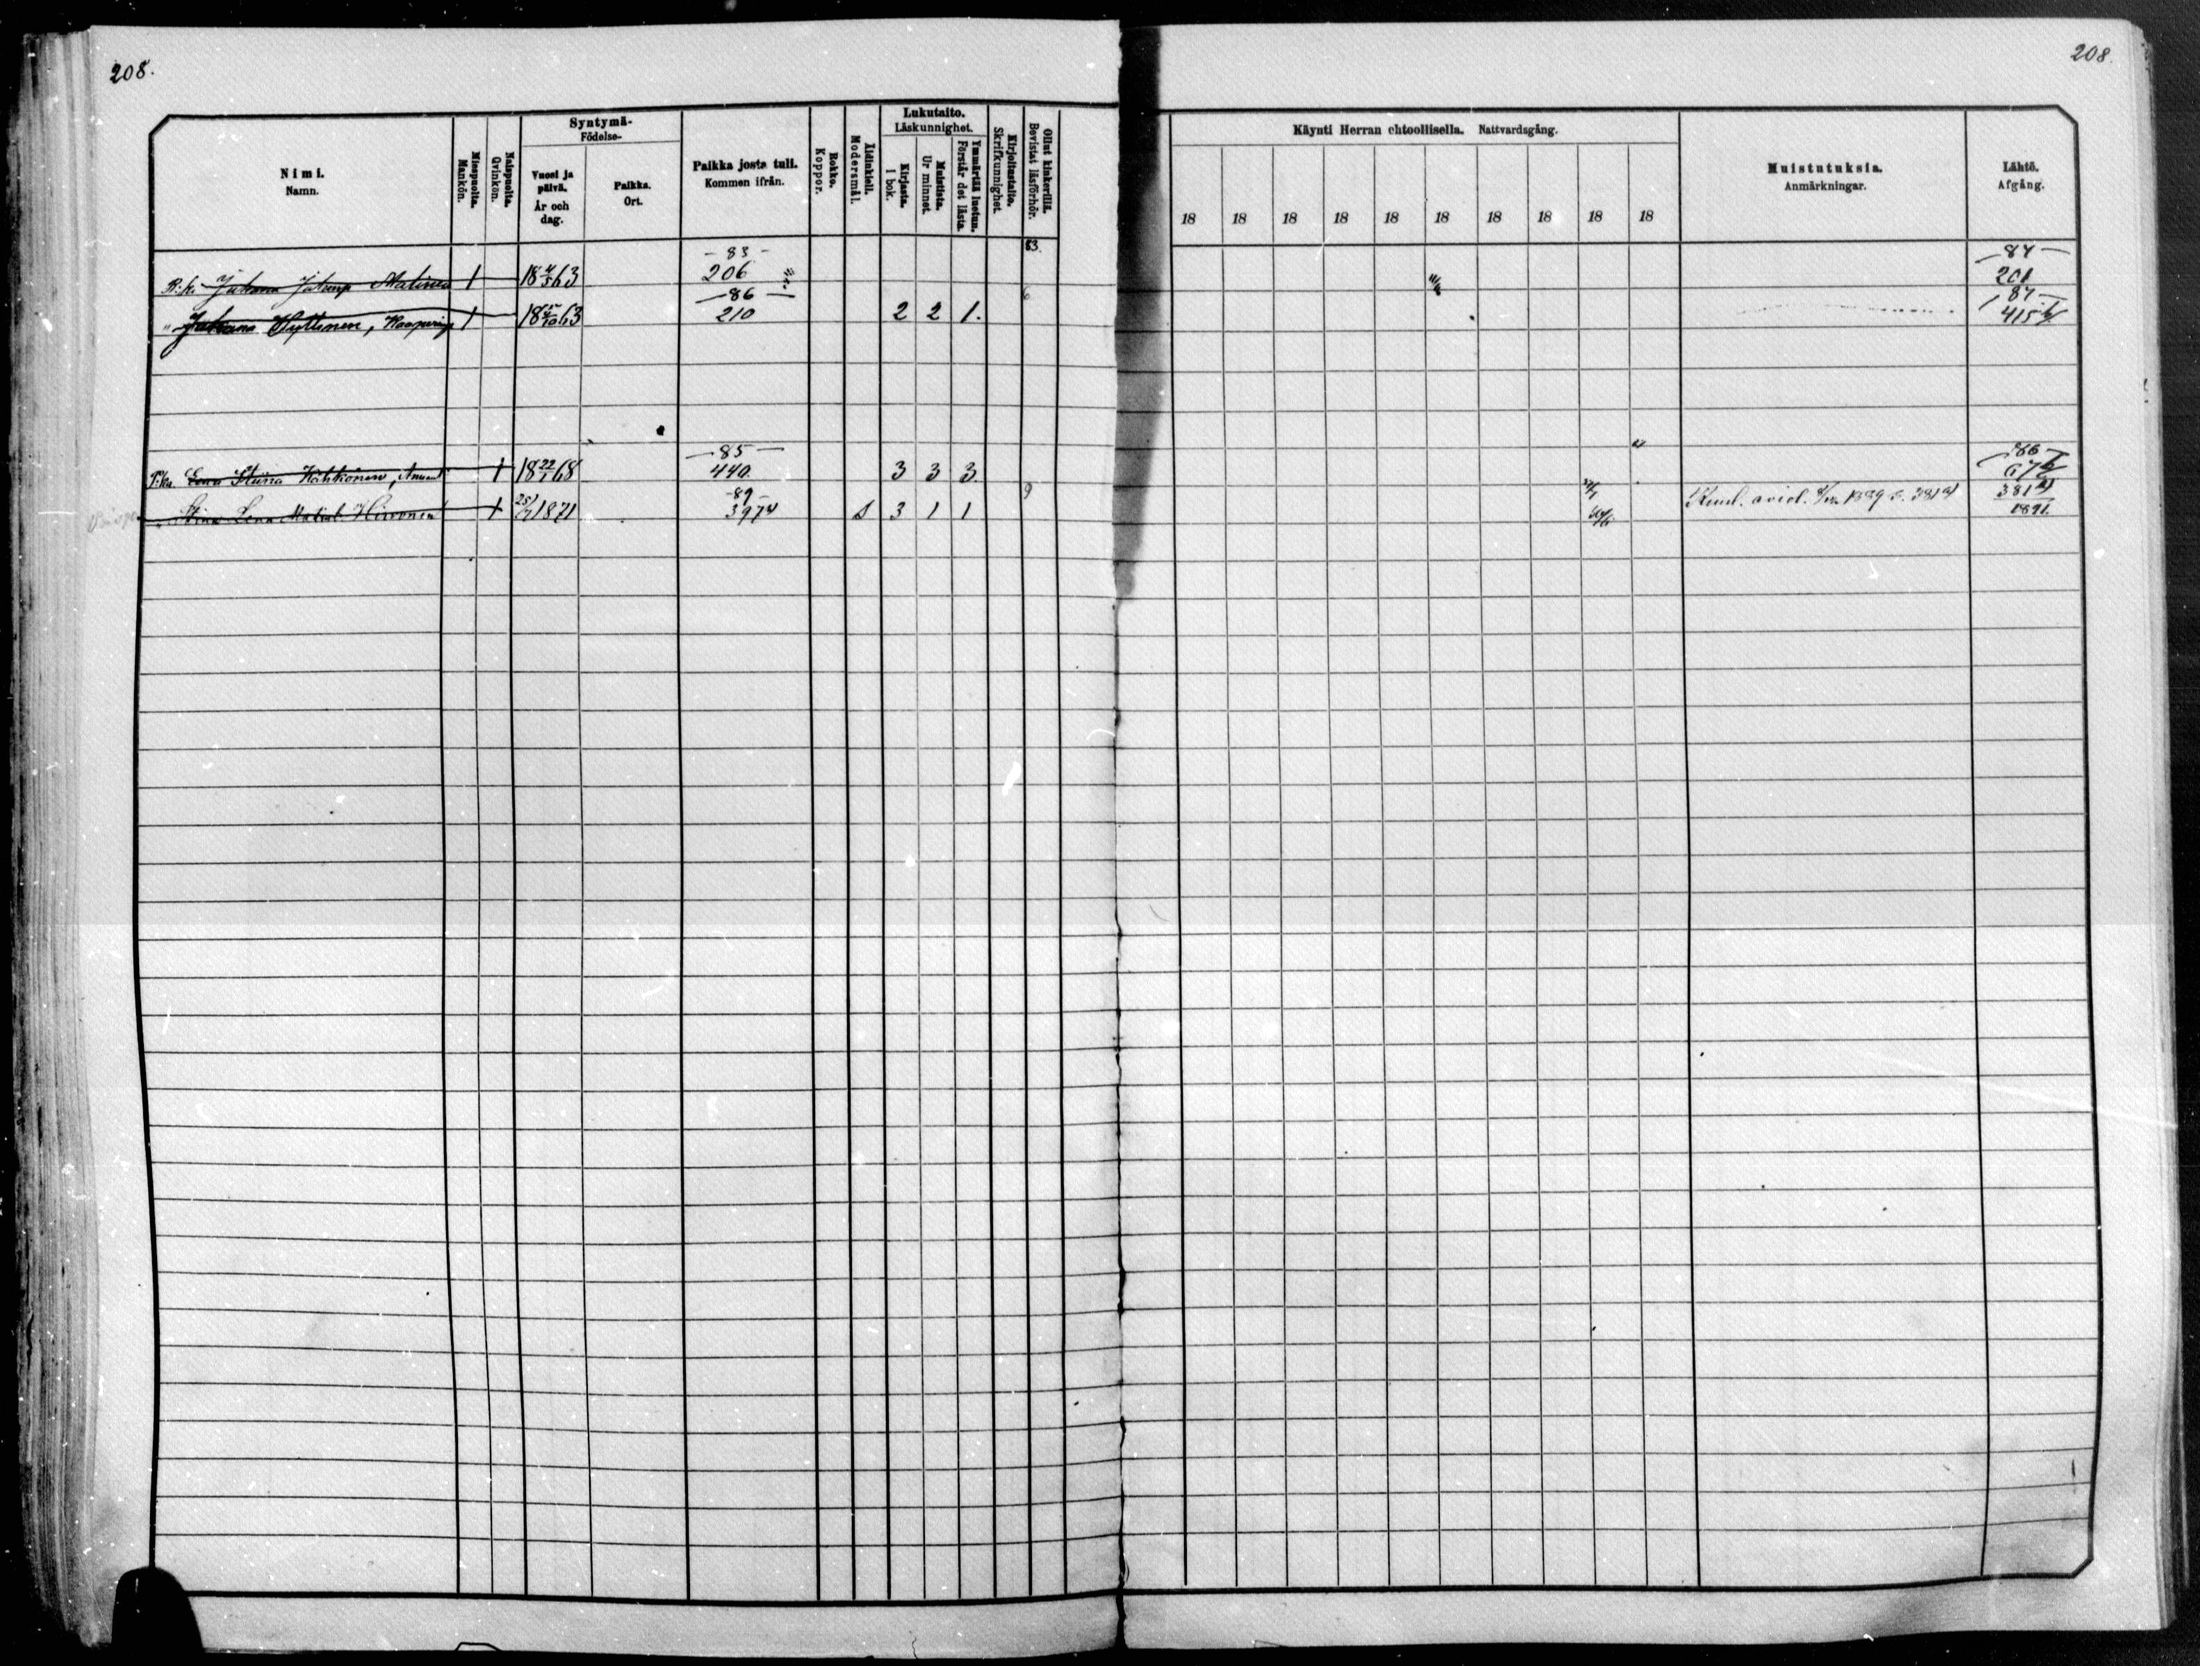 208.
208.
Nimi.
Namn.
Miespuolia.
Mankön.
Naispuolia.
Qvinkön.
Syntymä-
Födelse-
Vuosi ja
päivä.
År och
dag.
Paikka.
Ort.
Paikka josta tuli.
Kommen ifrån.
Rokko.
Koppor.
Äidinkieli.
Modersmål.
Lukutaito.
Läskunnighet.
Kirjasta.
I bok.
Muistista.
Ur minnet
Ymmärtää luetun.
Förstår det lästa
Kirjoitustaito.
Skrifkunnighet.
Ollut kinkerillä.
Bevistat läsförhör.
83.
Käynti Herran ehtoollisella. Nattvardsgång.
18 18 18 18 18 18 18 18 18 18
Muistutuksia.
Anmärkningar.
Lähtö.
Afgång.
-83- -84-
R:k. Juhana Matinen 1 18 4/5 63 206 201
-86- 6 87-
" Juhana Hyttinen, 1 18 63 210 2 2 1. 415
-85- -86-
Lena Stiina 1 18 22/1 68 440. 3 3 3
-89- 9
Stina Lena Hirvonen 1 25/7 1871 397 3 1 1 aviol. 1889 381
1891.